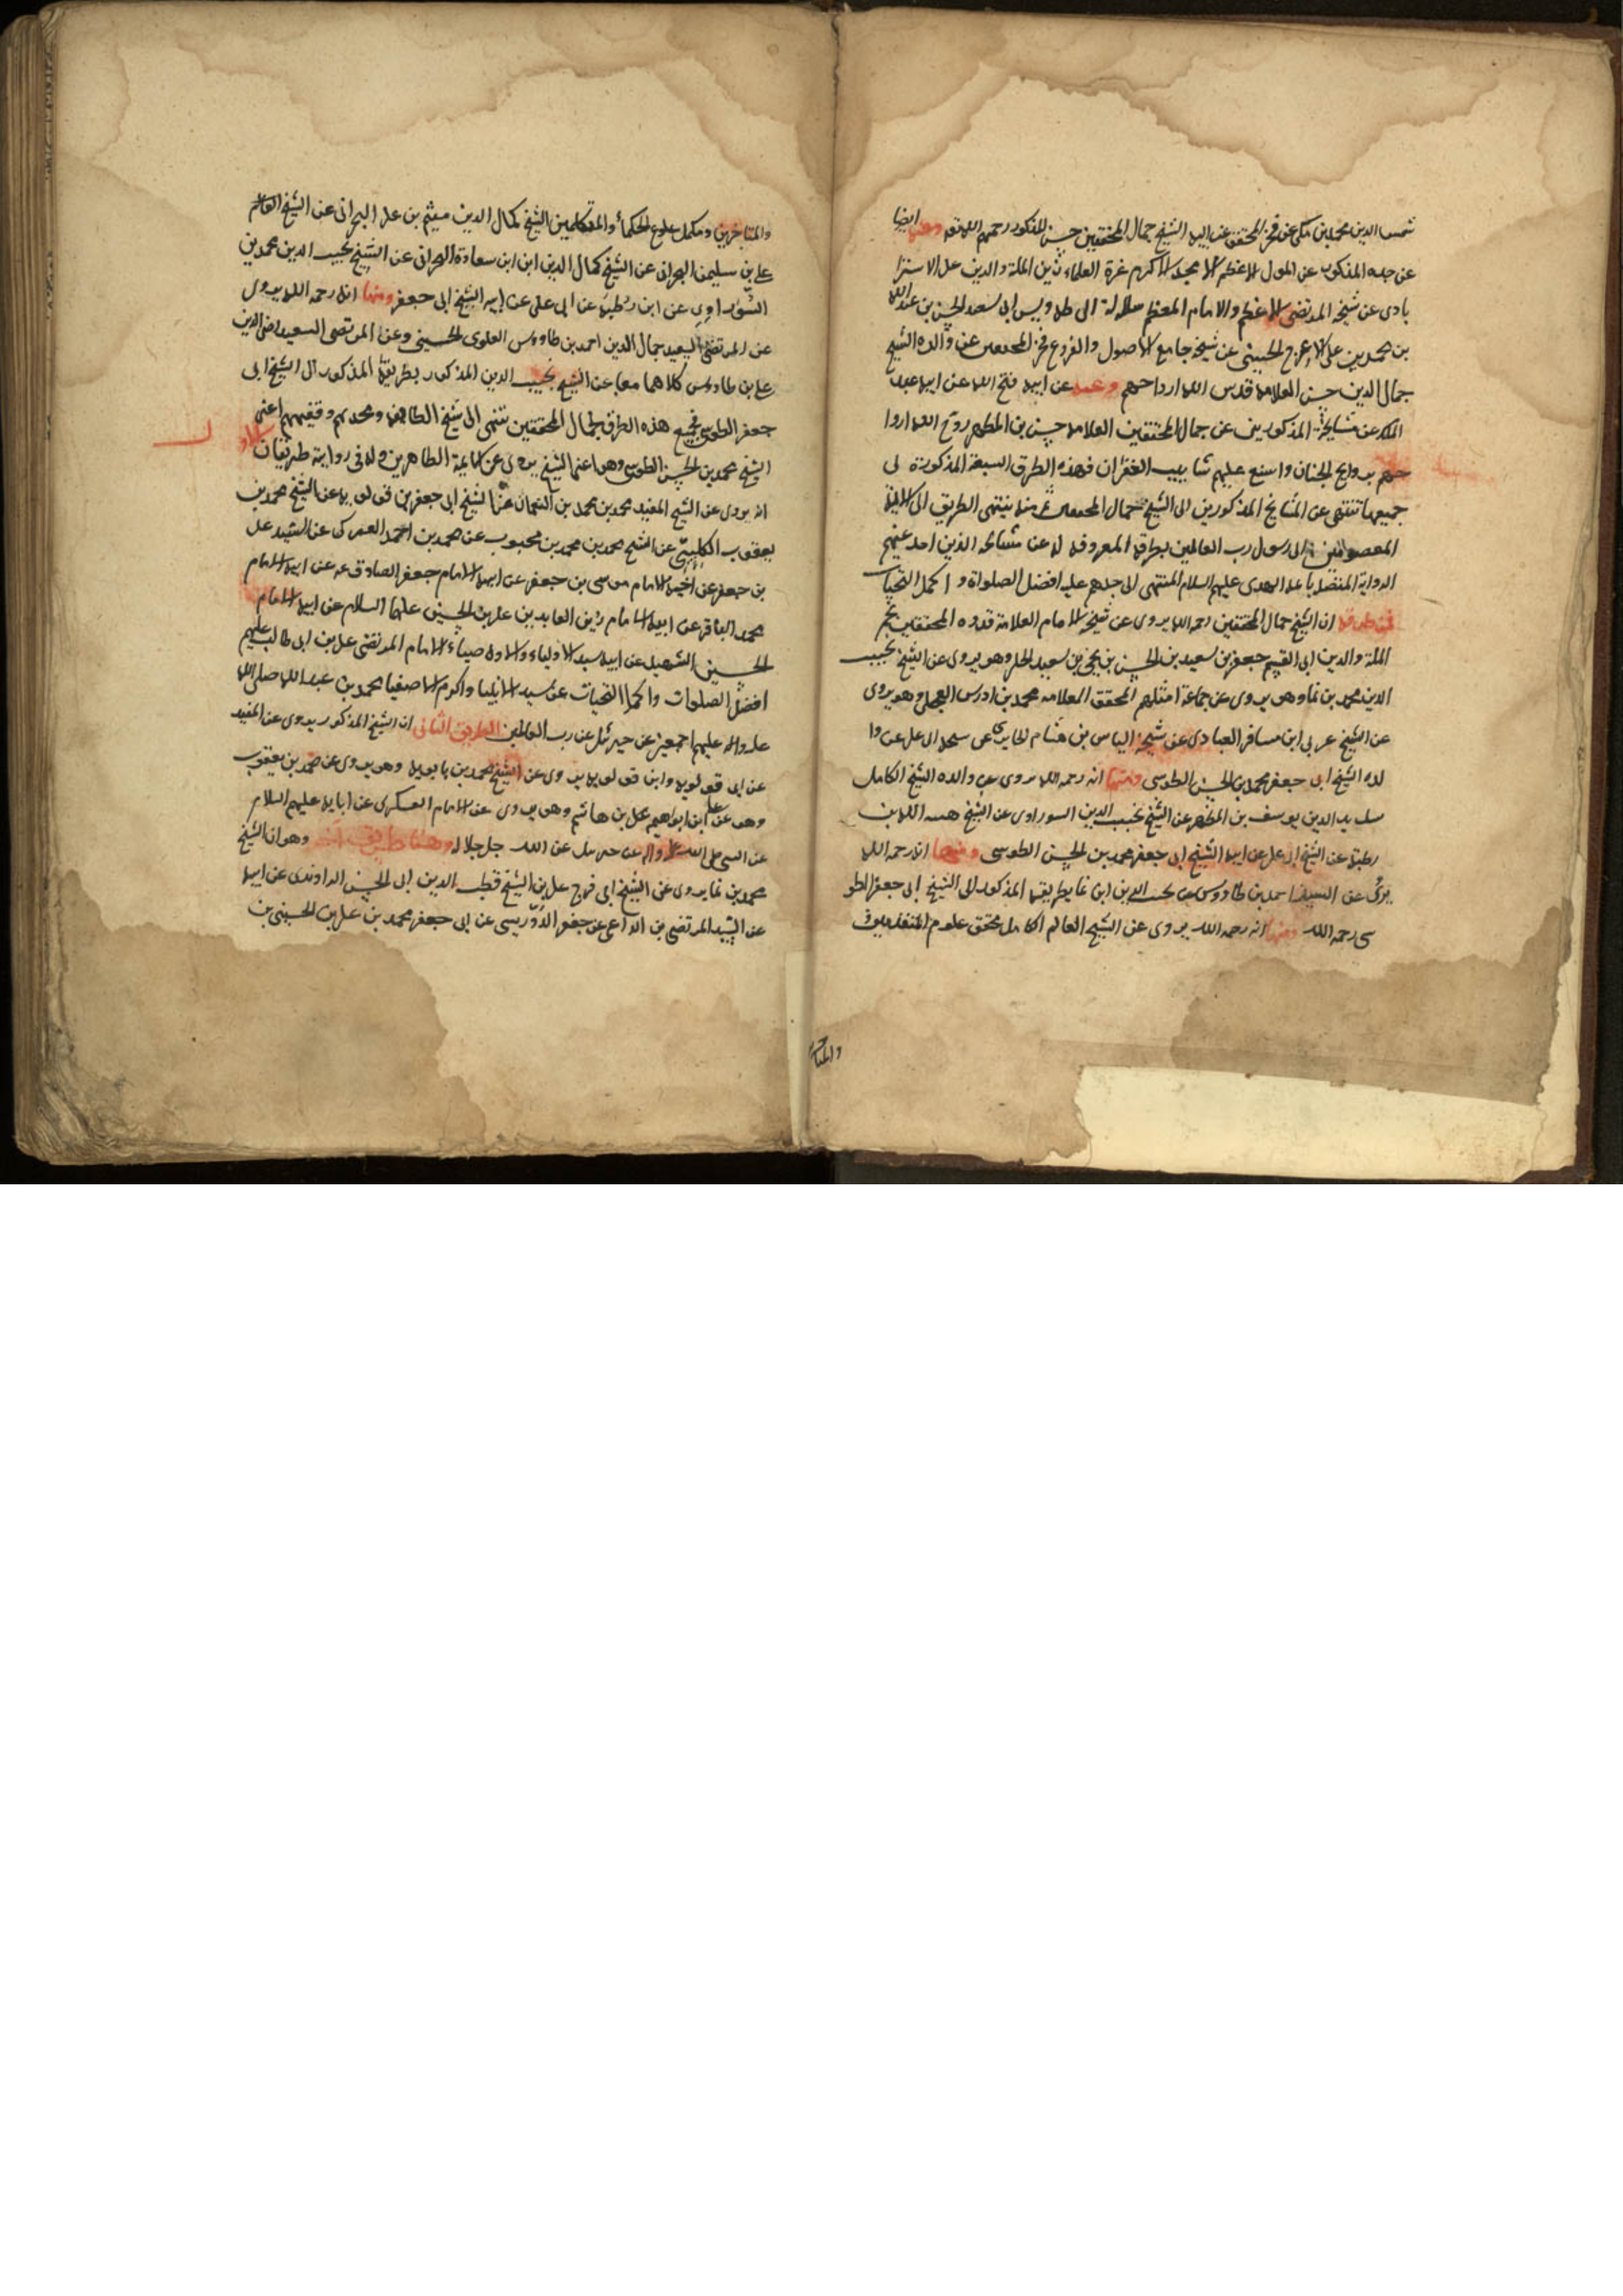 شمس الدين محمد بن مكي عن فخر المحقق عن ابيه الشيخ جمال المحققين حسن المذكور رحمهم الله تعه وعنه ايضا
عن جده المذكور عن المولى الاعظم الامجد الاكرم غرة العلماء زين الملة والدين على الاسترا
بادى عن شيخه المرتضى الاعظم والامام المعظم سلالة ال طه ويس ابى سعيد الحسن بن عبد الله
بن محمد بن على الاعرج الحسينى عن شيخه جامع الاصول والفروع فخر المحققين عن والده الشيخ
جمال الدين حسن العلامه قدس الله ارواحهم وعنه عن ابيه فتح الله عن ابيه عبد
الملك عن مشايخه المذكورين عن جمال المحققين العلامه حسن بن المطهر روح الله اروا
حهم بروايح الجنان واسبغ عليهم شابيب الغفران فهذه الطرق السبعة المذكورة لى
جميعها تنتهى عن المشايخ المذكورين الى الشيخ جمال المحققين ثم منه ينتهى الطريق الى الائمة
المعصومين الى رسول رب العالمين بطرقه المعروفه له عن مشائخه الذين اخذ عنهم
الرواية المتصلة باهل الهدى عليهم السلام المنتهى الى جدهم عليه افضل الصلواة و اكمل التحيات
فمن طرقه ان الشيخ جمال المحققين رحمه الله يروى عن شيخه الامام العلامة قدوه المحققين نجم
الملة والدين ابى القسم جعفر بن سعيد بن الحسن بن يحيى بن سعيد الحلى وهو يروى عن الشيخ نجيب
الدين محمد بن نما وهو يروى عن جماعة امثلهم المحقق العلامه محمد بن ادرس العجلى وهو يروى
عن الشيخ عربى ابن مسافر العبادى عن شيخه الياس بن هشام الحايرى عن شيخه ابى على عن وا
لده الشيخ ابى جعفر محمد بن الحسن الطوسى ومنها انه رحمه الله يروى عن والده الشيخ الكامل
سديد الدين يوسف بن المطهر عن الشيخ نجيب الدين السوراوى عن الشيخ هبه الله بن
رطبة عن الشيخ ابى على عن ابيه الشيخ ابى جعفر محمد بن الحسن الطوسى ومنها انه رحمه الله
يروى عن السيد احمد بن طاووس عن نجيب الدين ابن نما بطريقه المذكور الى الشيخ ابى جعفر الطو
سى رحمه الله ومنها انه رحمه الله يروى عن الشيخ العالم الكامل محقق علوم المتقدمين
والمتاخرين
والمتاخرين ومكمل علوم الحكماء والمتكلمين الشيخ كمال الدين ميثم بن على البحرانى عن الشيخ العالم
على بن سليمن البحرانى عن الشيخ كمال الدين ابن ابن سعادة البحرانى عن الشيخ نجيب الدين محمد بن
السوراوى عن ابن رطبة عن ابى على عن ابيه الشيخ ابى جعفر ومنها انه رحمه الله يروى
عن المرتضى السعيد جمال الدين احمد بن طاووس العلوى الحسينى وعن المرتضى السعيد رضى الدين
على بن طاووس كلاهما معا عن الشيخ نجيب الدين المذكور بطريقه المذكور الى الشيخ ابى
جعفر الطوسى فجميع هذه الطرق لجمال المحققين تنتهى الى شيخ الطائفه ومحدثهم وفقيههم اعنى
الشيخ محمد بن الحسن الطوسى وهو اعنى الشيخ يروى عن الائمة الطاهرين وله فى رواية طريقان
انه يروى عن الشيخ المفيد محمد بن محمد بن النعمان عن الشيخ ابى جعفر بن قولويه عن الشيخ محمد بن
يعقوب الكلينى عن الشيخ محمد بن محمد بن محبوب عن محمد بن احمد العمركى عن السيد على
بن جعفر عن اخيه الامام موسى بن جعفر عن ابيه الامام جعفر الصادق عه عن ابيه الامام
محمد الباقر عن ابيه الامام زين العابدين على بن الحسين عليهما السلام عن ابيه الامام
الحسين الشهيد عن ابيه سيد الاولياء والاوصياء الامام المرتضى على بن ابى طالب عليهم
افضل الصلوات واكمل التحيات عن سيد الانبيا واكرم الاصفيا محمد بن عبد الله صلى الله
عليه واله عليهم اجمعين عن جبرئيل عن رب العالمين الطريق الثانى ان الشيخ المذكور يروى عن المفيد
عن ابن قولويه وابن قولويه يروى عن الشيخ محمد بن بابويه وهو يروى عن محمد بن يعقوب
وهو عن على ابن ابراهيم بن هاشم وهو يروى عن الامام العسكرى عن ابايه عليهم السلام
عن النبى صلى الله عليه واله عن جبرئيل عن الله جل جلاله وهنا طريق اخر وهو ان الشيخ
محمد بن نما يروى عن الشيخ ابى فرج على بن الشيخ قطب الدين ابى الحسن الراوندى عن ابيه
عن السيد المرتضى بن الداعى عن جعفر الدوريسى عن ابى جعفر محمد بن على بن الحسين بن